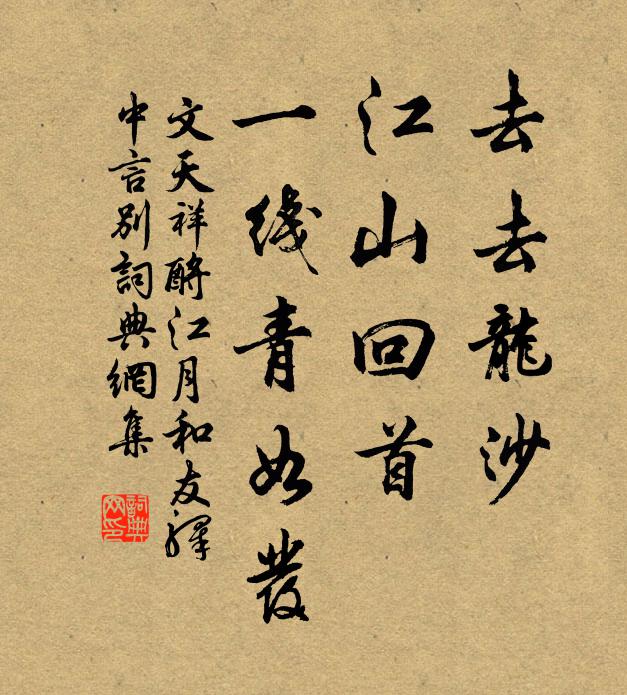 去去龍沙
江山回首
一綫青如發
文天祥酹江月和友驛
中言別詞典網集
詞典
网印